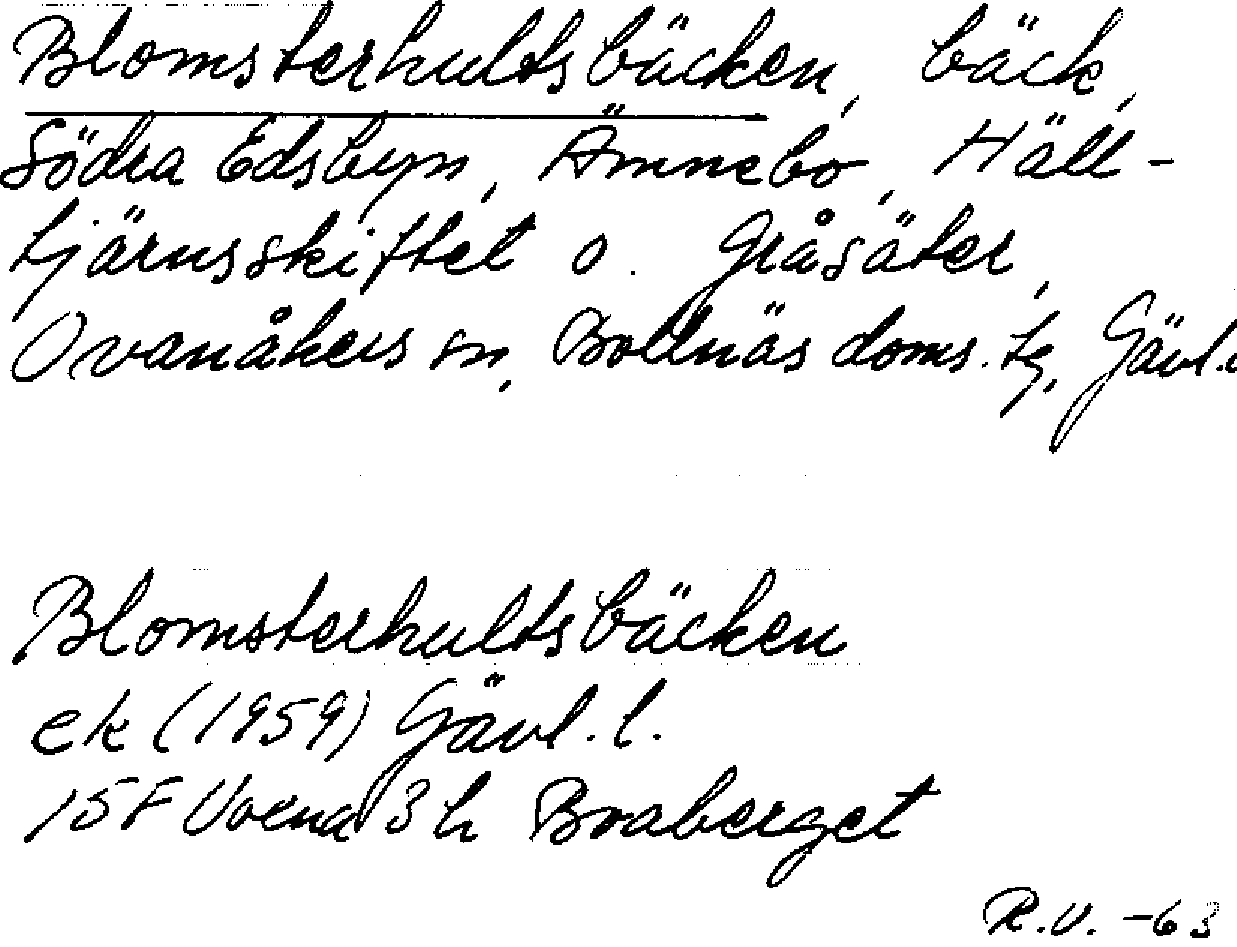 Blomsterhultsbäcken, bäck,
Södra Edsbyn, Ämnebo, Häll-
tjärnsskiftet o. Gråsäter,
Ovanåkers sn, Bollnäs doms. tg, Gävl.
Blomsterhultsbäcken
ek (1959) Gävl. l.
15F Voxna 3h Braberget
R.V. -63